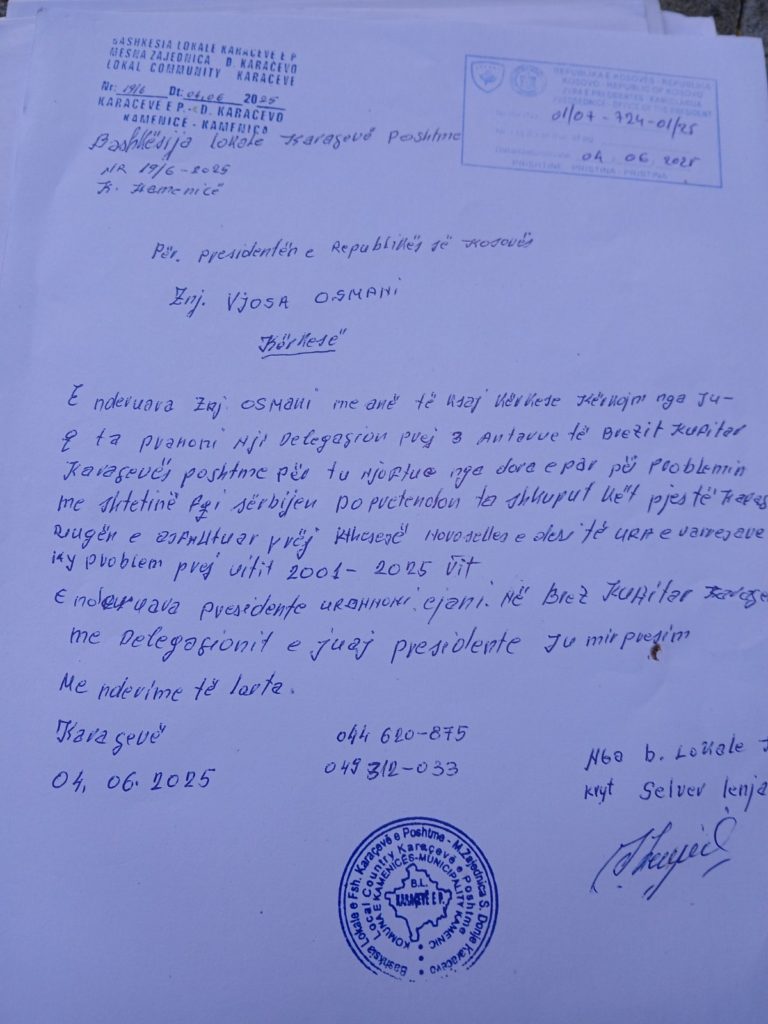 BASHKESIA LOKALE KARAÇEVE E P
MESNA ZAJEDNICA D. KARAĆEVO
LOKAL COMMUNITY KARAÇEVE
Nr: 19/6 Dt: 04.06 2025
KARAÇEVE E P. - D. KARAĆEVO
KAMENICE - KAMENICA
REPUBLIKA E KOSOVËS - REPUBLIKA
KOSOVO - REPUBLIC OF KOSOVO
01/07-724-01/25
04. 06. 2025
PRISHTINË - PRIŠTINA - PRISTINA
Bashkësija lokale Karaqevë Poshtme
NR 19/6-2025
K. Kamenicë
Për. presidentën e Republikës së Kosovës
Znj. VJOSA OSMANI
Kërkesë
E nderuara Znj OSMANI me anë të ksaj kërkese kërkojm nga Ju-
q ta pranoni Nji Delegasion prej 3 Antarve të Brezit Kufitar
Karaqevës poshtme për tu njoftua nga dora e par për problemin
me shtetinë sërbijen po pretendon ta shkuput kët pjes të Karaq
Rrugën e asfaltuar prej Novoselles e deri të URA e varrejave
ky problem prej vitit 2001-2025 vit
E nderuara presidente urdhnoni ejani. NË Brez Kufitar Karaqe
me Delegasionit e juaj presidente Ju mir presim
Me nderime të larta.
Karaqevë 044 620-875
04. 06. 2025 049 312-033
Nga b. Lokale
kryt Selver
Bashksia Lokale e Fsh. Karaçevë e Poshtme - M.Zajednica S. Donje Karačevo
Local Country Karaçevë e Poshtme
KOMUNA E KAMENICËS-MUNICIPALITY KAMENIC
B.L.
KARAÇEVË E P.